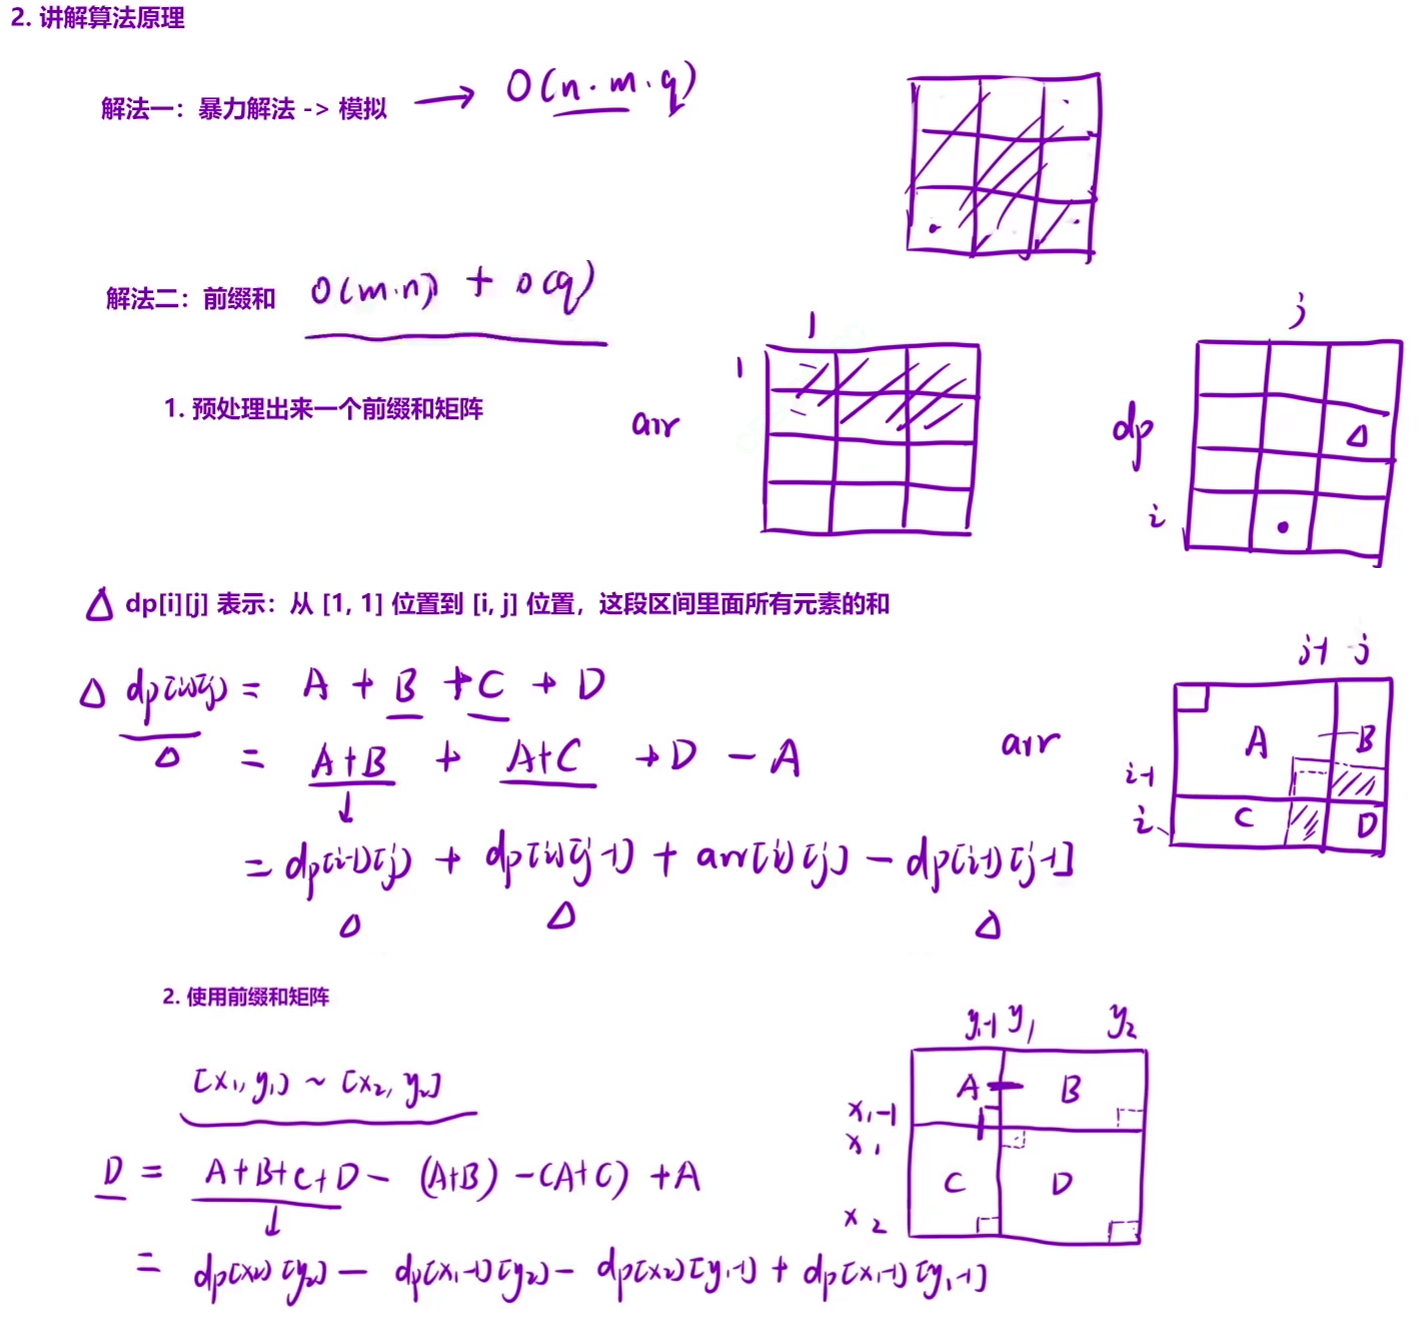 2. 讲解算法原理
解法一：暴力解法 -> 模拟 → O(n·m·q)
解法二：前缀和 O(m·n) + O(q)
1. 预处理出来一个前缀和矩阵
1
1
arr
j
dp
Δ
i
Δ dp[i][j] 表示：从 [1, 1] 位置到 [i, j] 位置，这段区间里面所有元素的和
Δ dp[i][j] = A + B + C + D
Δ
= A+B + A+C + D - A
= dp[i-1][j] + dp[i][j-1] + arr[i][j] - dp[i-1][j-1]
Δ Δ Δ
j-1 j
arr
A B
i-1
i
C D
2. 使用前缀和矩阵
[x1, y1] ~ [x2, y2]
D = A+B+C+D - (A+B) - (A+C) + A
= dp[x2][y2] - dp[x1-1][y2] - dp[x2][y1-1] + dp[x1-1][y1-1]
y1-1 y1 y2
A B
x1-1
x1
C D
x2